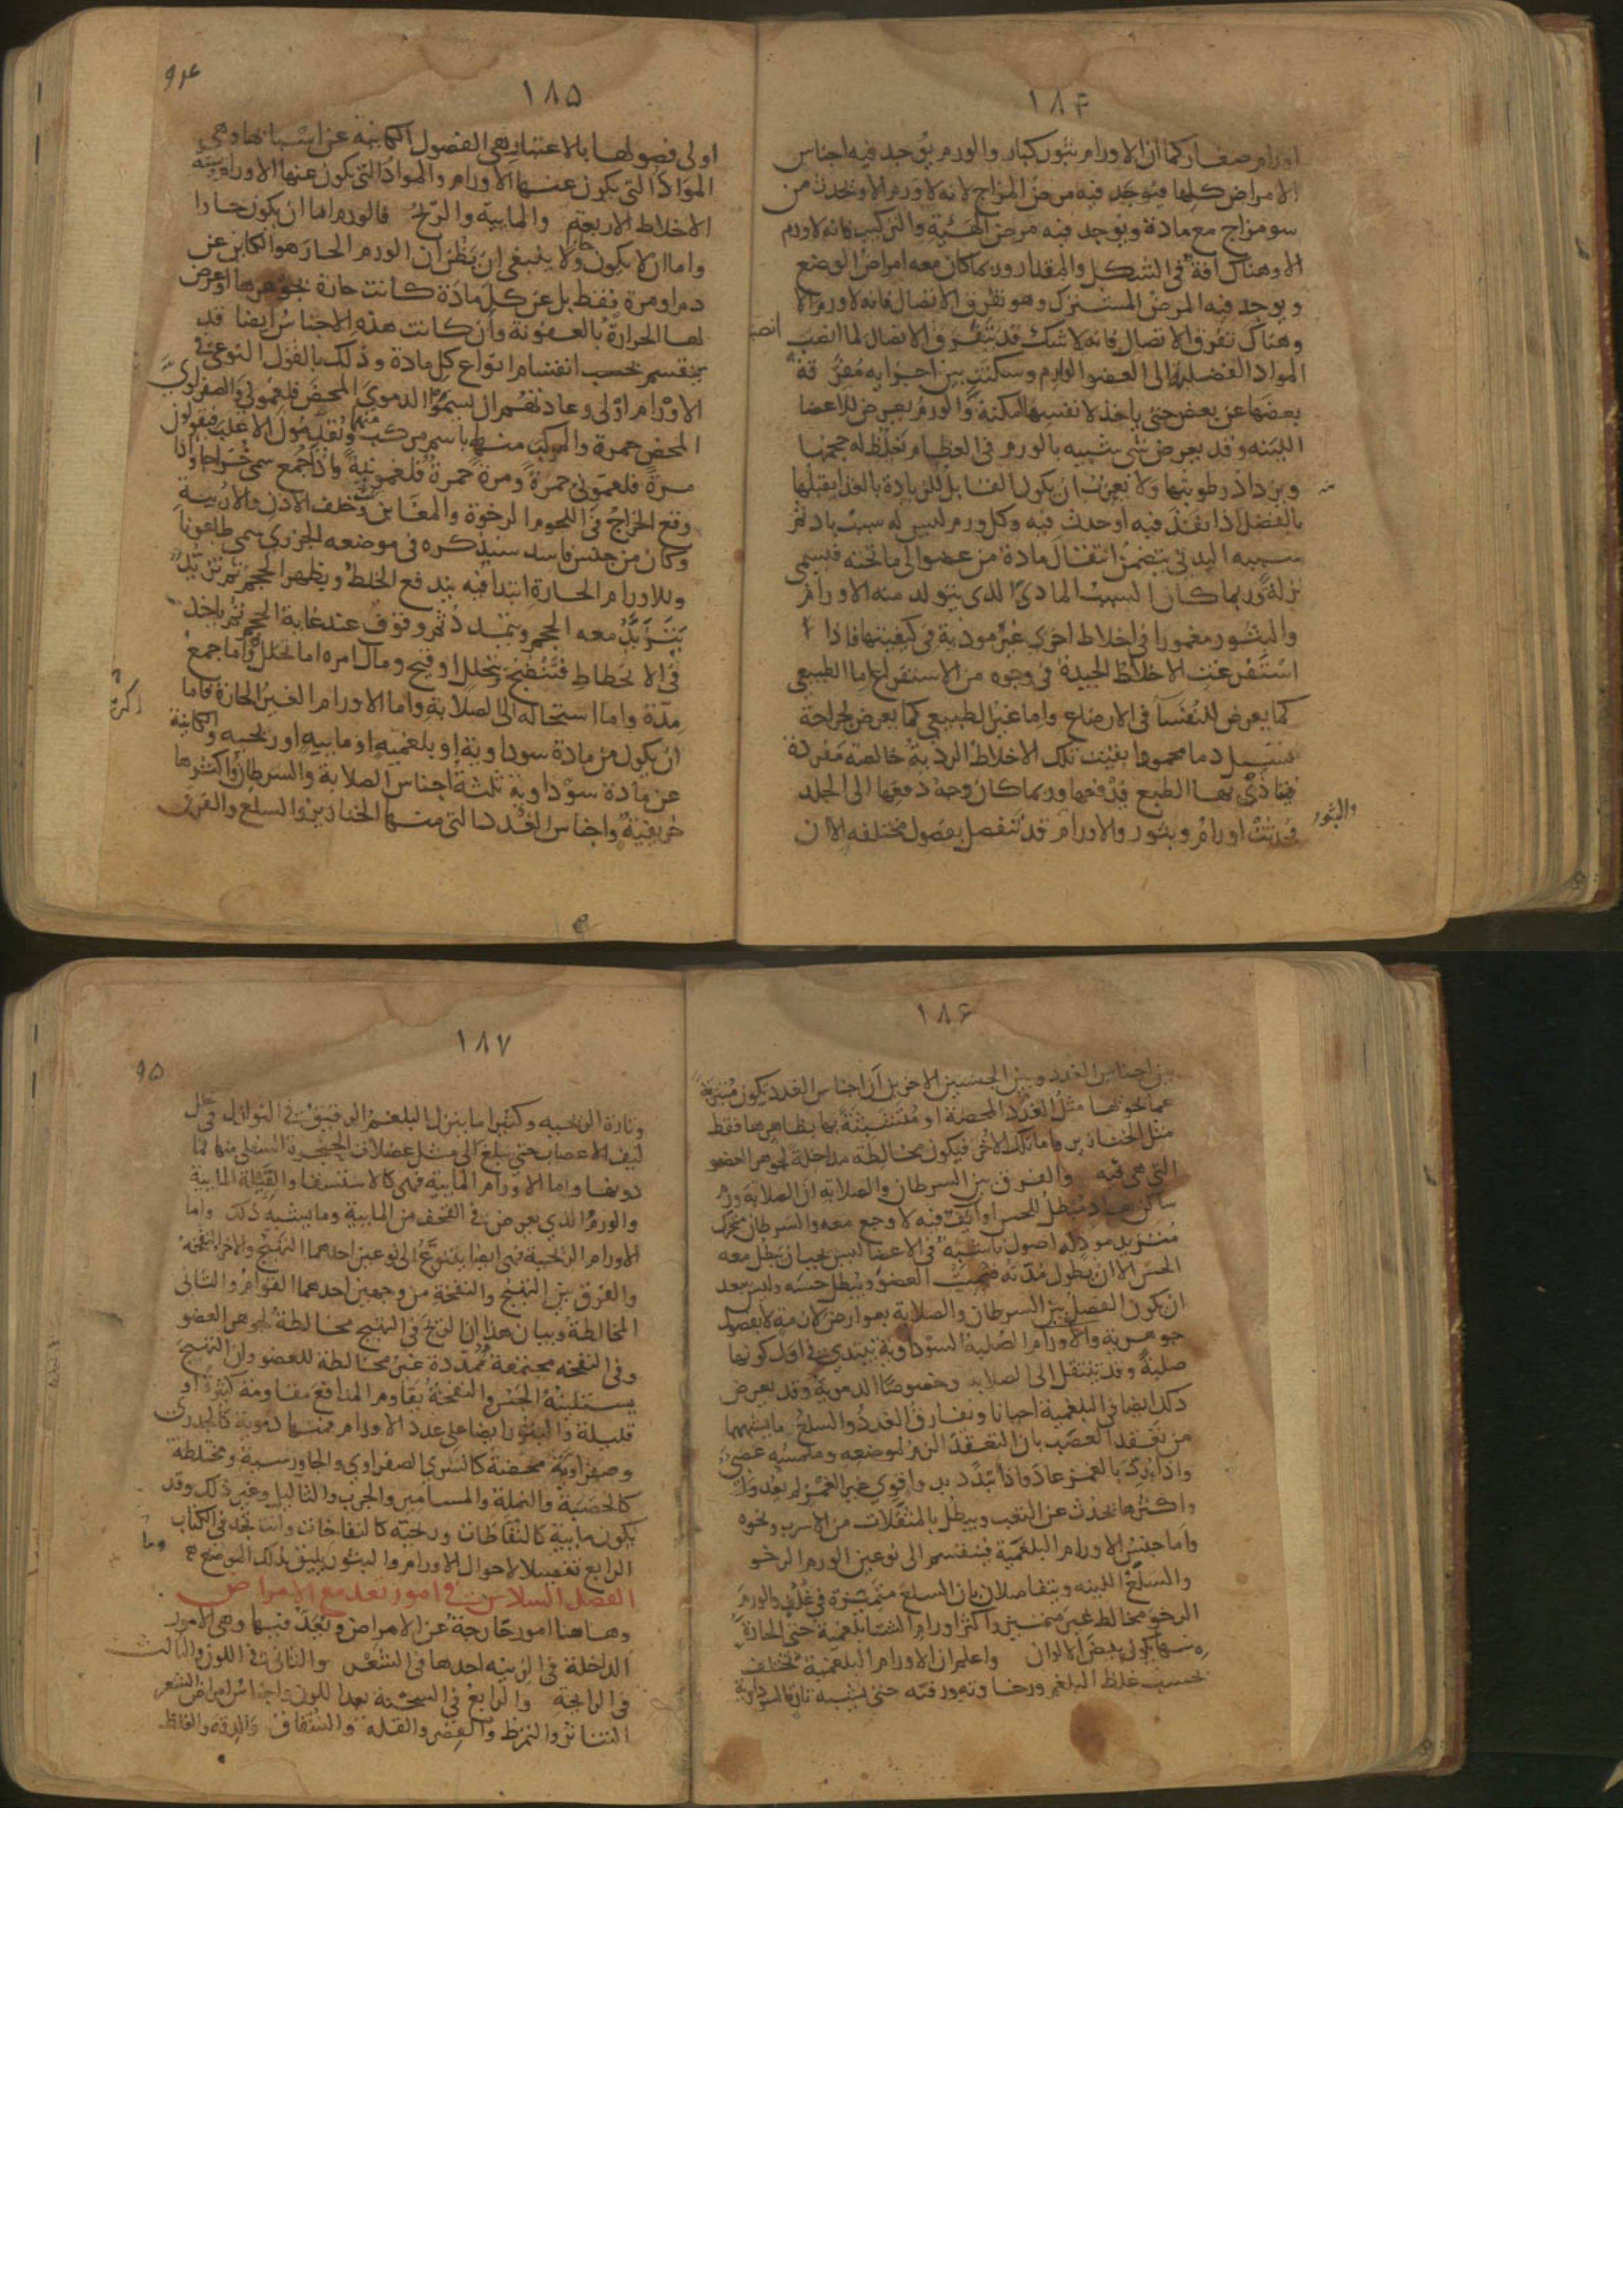 ١٨۴
اورام صغار كما ان الاورام بثور كبار والورم يوجد فيه اجناس
الامراض كلها فيوجد فيه مرض المزاج لانه لا ورم الا ويحدث من
سو مزاج مع مادة ويوجد فيه مرض الهئية والتركيب فانه لا ورم
الا وهناك افة فى الشكل والمقدار وربما كان معه امراض الوضع
ويوجد فيه المرض المشترك وهو تفرق الاتصال فانه لا ورم الا
وهناك تفرق الاتصال فانه لا شك قد تتفرق الاتصال لما انصب
المواد الفضلية الى العضو الوارم وسكنت بين اجزايه مفرقة
بعضها عن بعض حتى ياخذ لانفسها امكنة والورم يعرض للاعضا
اللينه وقد يعرض شى شبيه بالورم فى العظام تغلظ له حجمها
ويزداد رطوبتها ولا تعجب ان يكون القابل للزيادة بالغذا يقبلها
بالفضل اذا نفذ فيه او حدث فيه وكل ورم ليس له سبب باد
سببه البدنى يتضمن انتقال مادة من عضو الى ما تحته فيسمى
نزلة وربما كان السبب المادى الذى يتولد منه الاورام
والبثور مغمورا فى اخلاط اخرى غير موذية فى كيفيتها فاذا
استفرغت الاخلاط الجيدة فى وجوه من الاستفراغ اما الطبيعى
كما يعرض للنفسا فى الارضاع واما غير الطبيعى كما يعرض لجراحة
تسيل دما محمودا بقيت تلك الاخلاط الردية خالصة مفردة
فتاذى بها الطبع فدفعها وربما كان وجه دفعها الى الجلد
فحدثت اورام وبثور والاورام قد تنفصل بفصول مختلفه الا ان
والبثور
١٨۵
٩۴
اولى فصولها بالاعتبار هى الفصول الكاينة عن اسبابها وهى
المواد التى يكون عنها الاورام والمواد التى يكون عنها الاورام ستة
الاخلاط الاربعة والمايية والريح فالورم اما ان يكون حارا
واما ان لا يكون ولا ينبغى ان يظن ان الورم الحار هو الكاين عن
دم او مرة فقط بل عن كل مادة كانت حارة بجوهرها او عرض
لها الحرارة بالعفونة وان كانت هذه الاجناس ايضا قد
ينقسم بحسب انقسام انواع كل مادة وذلك بالقول النوعى فى
الاورام اولى وعادتهم ان يسموا الدموى المحض فلغمونى والصفراوى
المحض حمرة والمركب منهما باسم مركب منهما ويقدمون الاغلب فيقولون
مرة فلغمونى حمرة ومرة حمرة فلغمونية واذا جمع سمى خراجا واذا
وقع الخراج فى اللحوم الرخوة والمغابن وخلف الاذن والاربية
وكان من جنس فاسد سنذكره فى موضعه الجزرى سمى طاعونا
وللاورام الحارة ابتدا فيه يندفع الخلط ويظهر الحجم ثم تزيد
يتزيد معه الحجم ويتمدد ثم وقوف عند غاية الحجم ثم ياخذ
فى الانحطاط فتنضج بتحلل او قيح ومال امره اما تحلل واما جمع
مدة واما استحالة الى الصلابة واما الاورام الغير الحارة فاما
ان يكون من مادة سوداوية او بلغميه او مايية او ريحيه والكاينة
عن مادة سوداوية ثلثة اجناس الصلابة والسرطان واكثرها
خريفية واجناس الغدد التى منها الخنازير والسلع والفرق
١٨۶
بين اجناس الغدد وبين الجنسين الاخرين ان اجناس الغدد يكون متبرية
عما يحويها مثل الغدد المحضة او متشبثة بها بظاهرها فقط
مثل الخنازير واما تلك الاخر فيكون مخالطة مداخلة لجوهر العضو
التى هى فيه والفرق بين السرطان والصلابة ان الصلابة ورم
ساكن هاد مبطل للحس او ايف فيه لا وجع معه والسرطان متحرك
متزيد موذ له اصول ناشبة فى الاعضا ليس يجب ان يبطل معه
الحس الا ان يطول مدته فيميت العضو ويبطل حسه وليس يبعد
ان يكون الفصل بين السرطان والصلابة بعوارض لازمة لا بفصول
جوهرية والاورام الصلبة السوداوية تبتدى فى اول كونها
صلبة وقد تنتقل الى الصلابة وخصوصا الدموية وقد يعرض
ذلك ايضا فى البلغمية احيانا ويفارق الغدد والسلع ما يشبهها
من تعقد العصب بان التعقد الزم لموضعه وملمسه عصبى
واذا بدد بالغمز عاد واذا تبدد بدوا قوى غير الغمز لم يعد وان
واكثرها يحدث عن التعب ويبطل بالمثقلات من الاسرب ونحوه
واما جنس الاورام البلغمية فينقسم الى نوعين الورم الرخو
والسلع اللينه ويتفاصلان بان السلع متميزة فى غلف والورم
الرخو مخالط غير متميز واكثر اورام الشتا بلغمية حتى الحارة
منها يكون بيض الالوان واعلم ان الاورام البلغمية تختلف
بحسب غلظ البلغم ورخاوته ورقته حتى يشبه تارة السوداوية
١٨٧
٩۵
وتارة الريحيه وكثيرا ما ينزل البلغم الرقيق فى النوازل فى خلل
ليف الاعصاب حتى يبلغ الى مثل عضلات الحنجرة السفلى منها فما
دونها واما الاورام المايية فهى كالاستسقا والقيلة المايية
والورم الذى يعرض فى القحف من المايية وما يشبه ذلك واما
الاورام الريحية فهى ايضا يتنوع الى نوعين احدهما التهيج والاخر النفخة
والفرق بين التهيج والنفخة من وجهين احدهما القوام والثانى
المخالطة وبيان هذا ان الريح فى التهيج مخالطة لجوهر العضو
وفى النفخه مجتمعة متمددة غير مخالطة للعضو وان التهيج
يستلينه الحس والنفخة يقاوم المدافع مقاومة كثيرة او
قليلة والبثور ايضا على عدد الاورام فمنها دموية كالجدرى
وصفراوية محضة كالشرى الصفراوى والجاورسية ومختلطة
كالحصبة والنملة والمسامير والجرب والثاليل وغير ذلك وقد
يكون مايية كالنفاطات وريحيه كالنفاخات وانت تجد فى الكتاب
الرابع تفصيلا لاحوال الاورام والبثور يليق بذلك الموضع
الفصل السادس فى امور تعد مع الامراض
وهاهنا امور خارجة عن الامراض وتعد فيها وهى الامور
الداخلة فى الزينه احدها فى الشعر والثانى فى اللون والثالث
فى الرايحة والرابع فى السحنة بعد اللون واجناس امراض الشعر
التناثر والتمرط والقصر والقلة والشقاق والدقة والغلظ